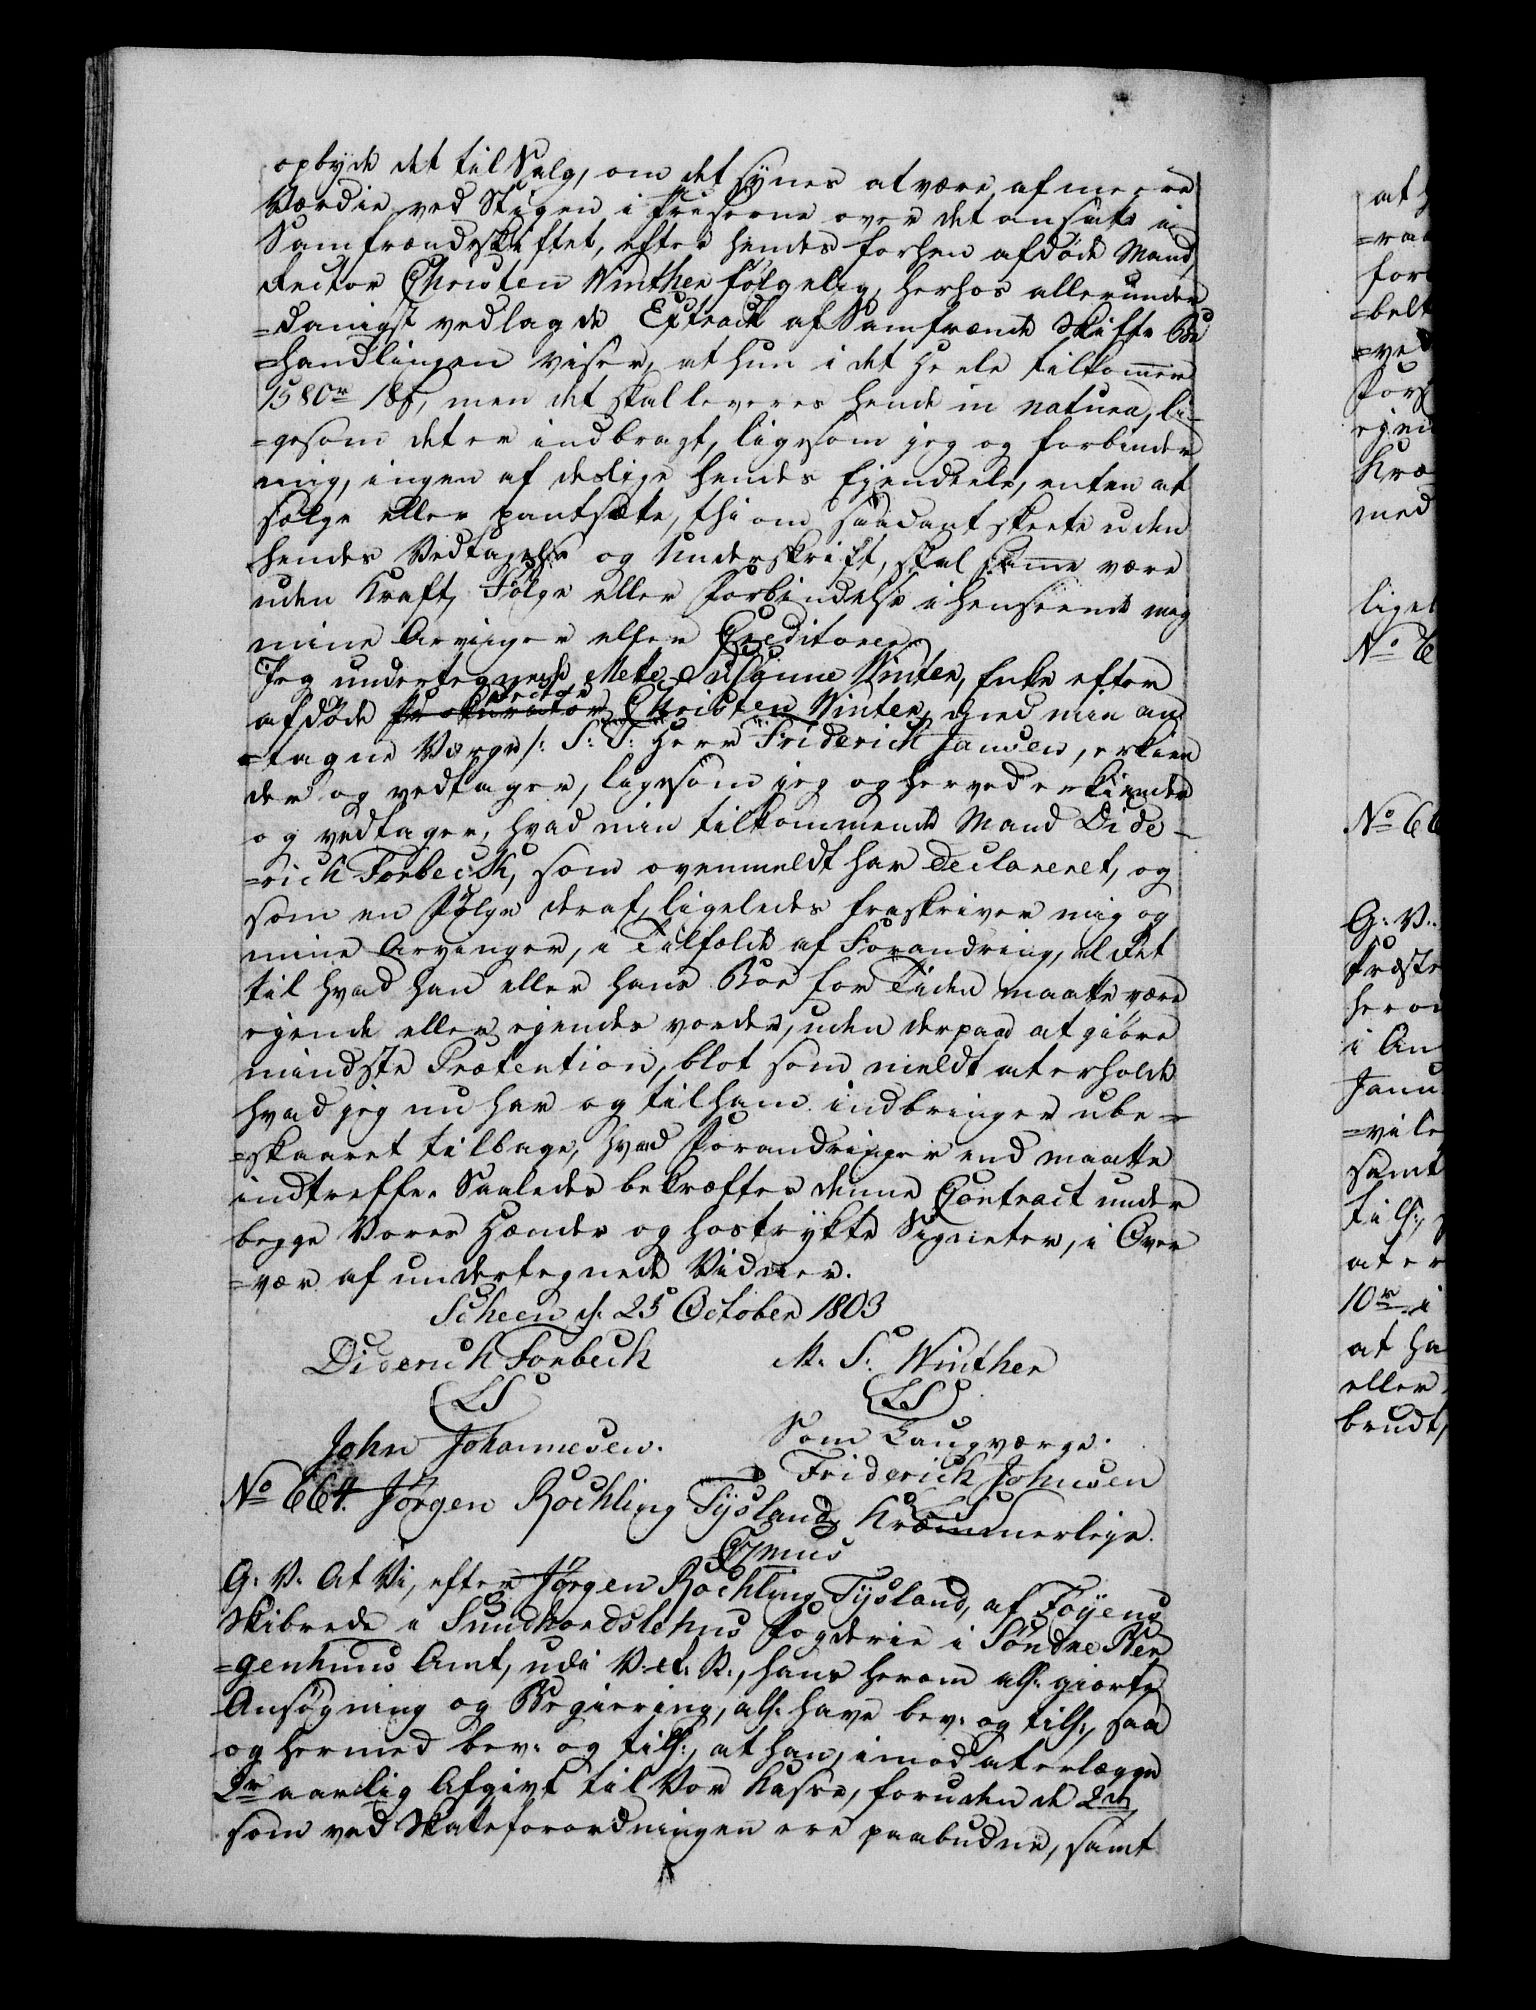 opbyde det til Salg, om det synes at være af meere
Værdie ved Stigen i Priserne over det ansatte i
Samfrændskiftet, efter hendes forhen afdøde Mand
Rector Christen Winther følgelig, herhos allerunder
=danigst vedlagde Extract af Samfrænde Skifte Be
=handlingen viser, at hun i det Heele tilkommer
1580r 18s, men det skal leveres hende in natura, li-
=gesom det er indbragt, ligesom jeg og forbinder
mig, ingen af deslige hendes Ejendeele, enten at
sælge eller pantsætte, thi om saadant skeete uden
hendes Vedtagelse og Underskrift, skal samme være
uden Kraft, Følge eller Forbindelse i henseende mig
mine Arvinger eller Creditorer.
Jeg undertegnede Mette Susanne Winter, Enke efter
afdøde Rector Christen Winter, med min an
=tagne Værge /: S: T: Herr Friderich Jansen, erkien
der og vedtager, ligesom jeg og herved erkiender
og vedtager, hvad min tilkommende Mand Dide-
=rich Forbech, som ovenmeldt har declareret, og
som en Følge deraf, ligeledes fraskriver mig og
mine Arvinger, i Tilfælde af Forandring, al Ret
til hvad han eller hans Boe for Tiden maatte være
ejende eller ejendes vorde, uden derpaa at giøre
mindste Prætention, blot som meldt at erholde
hvad jeg nu har og til ham indbringer ube=
=skaaret tilbage, hvad Forandringer end maatte
indtreffe. Saaledes bekræftes denne Contract under
begge Vores Hænder og hostrykte Signeter, i Over
=vær af undertegnede Vidner.
Scheen d: 25 October 1803
Diderich Forbech M. S. Winther
(LS) (LS)
John Johannesen. Som Laugværge.
Friderich Johnsen
No 664. Jørgen Rochling Tysland, Kræmmerleje.
G: V. At Vi, efter Jørgen Rochling Tysland, af Føyens
Skibrede i Sundhordslehns Fogderie i Søndre Ber
=genhuus Amt, udi V. et. R., hans herom alh. giorte
Ansøgning og Begiering, alh. have bev: og tilh:, saa
og hermed bev: og tilh:, at han, imod at erlægge
2r aarlig Afgivt til Vor Kasse, foruden de 2r
som ved Skatteforordningen ere paabudne, samt